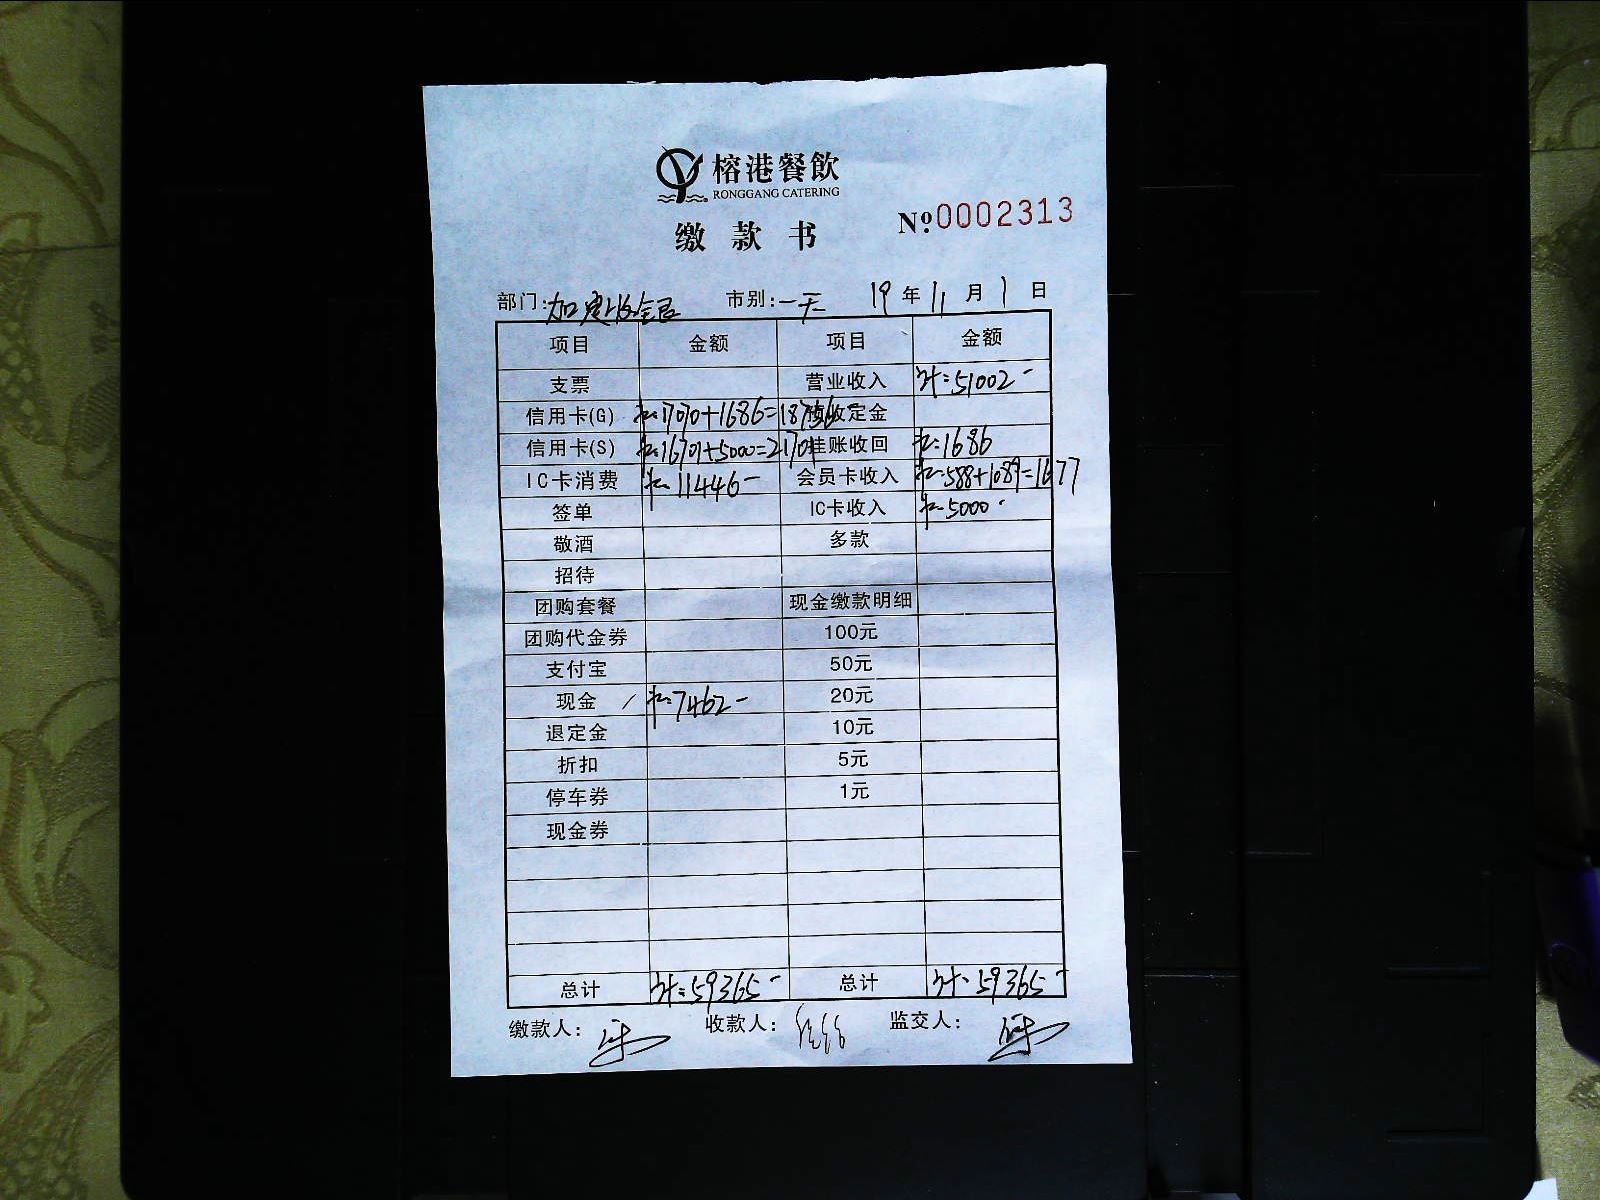 榕港餐飲
RONGGANG CATERING
缴款书
№:0002313
部门: 市别:一天 19年11月1日
项目 金额 项目 金额
支票 营业收入 计:51002-
信用卡(G) 17070+1686=18756 预收定金
信用卡(S) 16701+5000=21701 挂账收回 1686
IC卡消费 11446- 会员卡收入 588+1089=1677
签单 IC卡收入 5000-
敬酒 多款
招待
团购套餐 现金缴款明细
团购代金券 100元
支付宝 50元
现金 7462- 20元
退定金 10元
折扣 5元
停车券 1元
现金券
总计 计:59365- 总计 计:59365-
缴款人: 收款人: 监交人: